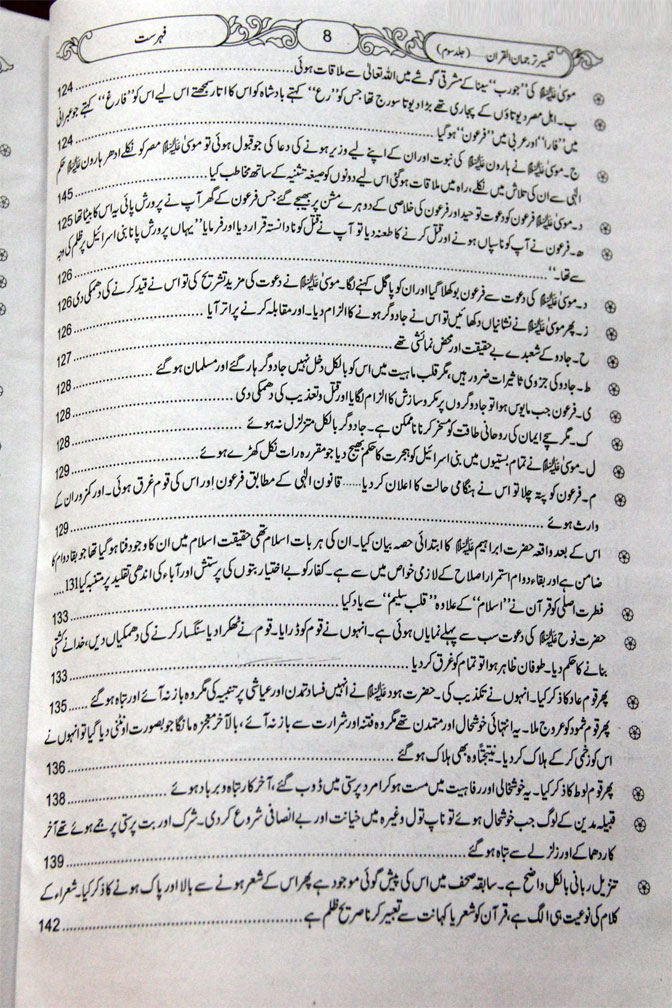 تفسیر ترجمان القرآن (جلد سوم)
8
فہرست
موسیٰ علیہ السلام کی ’’حورب‘‘ سینا کے مشرقی گوشے میں اللہ تعالیٰ سے ملاقات ہوئی ........ 124
ب۔ اہل مصر دیوتاؤں کے پجاری تھے بڑا دیوتا سورج تھا جس کو ’’رع‘‘ کہتے بادشاہ کو اس کا اوتار سمجھتے اس لیے اس کو ’’فارع‘‘ کہتے جو عبرانی
میں ’’فارا‘‘ اور عربی میں ’’فرعون‘‘ ہوگیا ........ 124
ج۔ موسیٰ علیہ السلام نے ہارون علیہ السلام کی نبوت اور ان کے اپنے لیے وزیر ہونے کی دعا کی جو قبول ہوئی تو موسیٰ علیہ السلام مصر کو نکلے ادھر ہارون علیہ السلام حکم
الٰہی سے ان کی تلاش میں نکلے، راہ میں ملاقات ہوگئی اس لیے دونوں کو صیغہ تثنیہ کے ساتھ مخاطب کیا ........ 145
د۔ موسیٰ علیہ السلام فرعون کو دعوت توحید اور فرعون کی خلاصی کے دوہرے مشن پر بھیجے گئے جس فرعون کے گھر آپ نے پرورش پائی یہ اس کا بیٹا تھا 125
ھ۔ فرعون نے آپ کو ناسپاس ہونے اور قتل کرنے کا طعنہ دیا تو آپ نے قتل کو نادانستہ قرار دیا اور فرمایا ’’یہاں پرورش پانا بنی اسرائیل پر ظلم کی وجہ
سے تھا۔‘‘ ........ 126
د۔ موسیٰ علیہ السلام کی دعوت سے فرعون بوکھلا گیا اور ان کو پاگل کہنے لگا۔ موسیٰ علیہ السلام نے دعوت کی مزید تشریح کی تو اس نے قید کرنے کی دھمکی دی 126
ز۔ پھر موسیٰ علیہ السلام نے نشانیاں دکھائیں تو اس نے جادوگر ہونے کا الزام دیا۔ اور مقابلہ کرنے پر اتر آیا ........ 126
ح۔ جادو کے شعبدے بے حقیقت اور محض نمائشی تھے ........ 127
ط۔ جادو کی جزوی تاثیرات ضرور ہیں، مگر قلب ماہیت میں اس کو بالکل دخل نہیں جادوگر ہار گئے اور مسلمان ہوگئے ........ 128
ی۔ فرعون جب مایوس ہوا تو جادوگروں پر مکر و سازش کا الزام لگایا اور قتل و تعذیب کی دھمکی دی ........ 128
ک۔ مگر سچے ایمان کی روحانی طاقت کو مسخر کرنا ناممکن ہے۔ جادوگر بالکل متزلزل نہ ہوئے ........ 128
ل۔ موسیٰ علیہ السلام نے تمام بستیوں میں بنی اسرائیل کو ہجرت کا حکم بھیج دیا جو مقررہ رات نکل کھڑے ہوئے ........ 129
م۔ فرعون کو پتہ چلا تو اس نے ہنگامی حالت کا اعلان کر دیا...... قانون الٰہی کے مطابق فرعون اور اس کی قوم غرق ہوئی۔ اور کمزور ان کے
وارث ہوئے ........ 129
اس کے بعد واقعہ حضرت ابراہیم علیہ السلام کا ابتدائی حصہ بیان کیا۔ ان کی ہر بات اسلام تھی حقیقت اسلام میں ان کا وجود فنا ہوگیا تھا جو بقا دوام کا
ضامن ہے اور بقاء دوام استمرار اصلاح کے لازمی خواص میں سے ہے۔ کفار کو بے اختیار بتوں کی پرستش اور آباء کی اندھی تقلید پر متنبہ کیا 131....
فطرت اصلی کو قرآن نے ’’اسلام‘‘ کے علاوہ ’’قلب سلیم‘‘ سے یاد کیا ........ 133
حضرت نوح علیہ السلام کی دعوت سب سے پہلے نمایاں ہوئی ہے۔ انہوں نے قوم کو ڈرایا۔ قوم نے ٹھکرا دیا سنگسار کرنے کی دھمکیاں دیں، خدا نے کشتی
بنانے کا حکم دیا۔ طوفان ظاہر ہوا تو تمام کو غرق کر دیا ........ 133
پھر قوم عاد کا ذکر کیا۔ انہوں نے تکذیب کی۔ حضرت ہود علیہ السلام نے انہیں فساد تمدن اور عیاشی پر تنبیہ کی مگر وہ باز نہ آئے اور تباہ ہوگئے ...... 135
پھر قوم ثمود کو عروج ملا۔ یہ انتہائی خوشحال اور متمدن تھے مگر وہ فتنہ اور شرارت سے باز نہ آئے، بالآخر معجزہ مانگا جو بصورت اونٹنی دیا گیا تو انہوں نے
اس کو زخمی کر کے ہلاک کر دیا۔ نتیجتًا وہ بھی ہلاک ہوگئے ........ 136
پھر قوم لوط کا ذکر کیا۔ یہ خوشحالی اور رفاہیت میں مست ہو کر امرد پرستی میں ڈوب گئے، آخر کار تباہ و برباد ہوئے ........ 138
قبیلہ مدین کے لوگ جب خوشحال ہوئے تو ناپ تول وغیرہ میں خیانت اور بے انصافی شروع کر دی۔ شرک اور بت پرستی پر جمے ہوئے تھے آخر
کار دھماکے اور زلزلے سے تباہ ہوگئے ........ 139
تنزیل ربانی بالکل واضح ہے۔ سابقہ صحف میں اس کی پیش گوئی موجود ہے پھر اس کے شعر ہونے سے بالا اور پاک ہونے کا ذکر کیا۔ شعراء کے
کلام کی نوعیت ہی الگ ہے، قرآن کو شعر یا کہانت سے تعبیر کرنا صریح ظلم ہے ........ 142